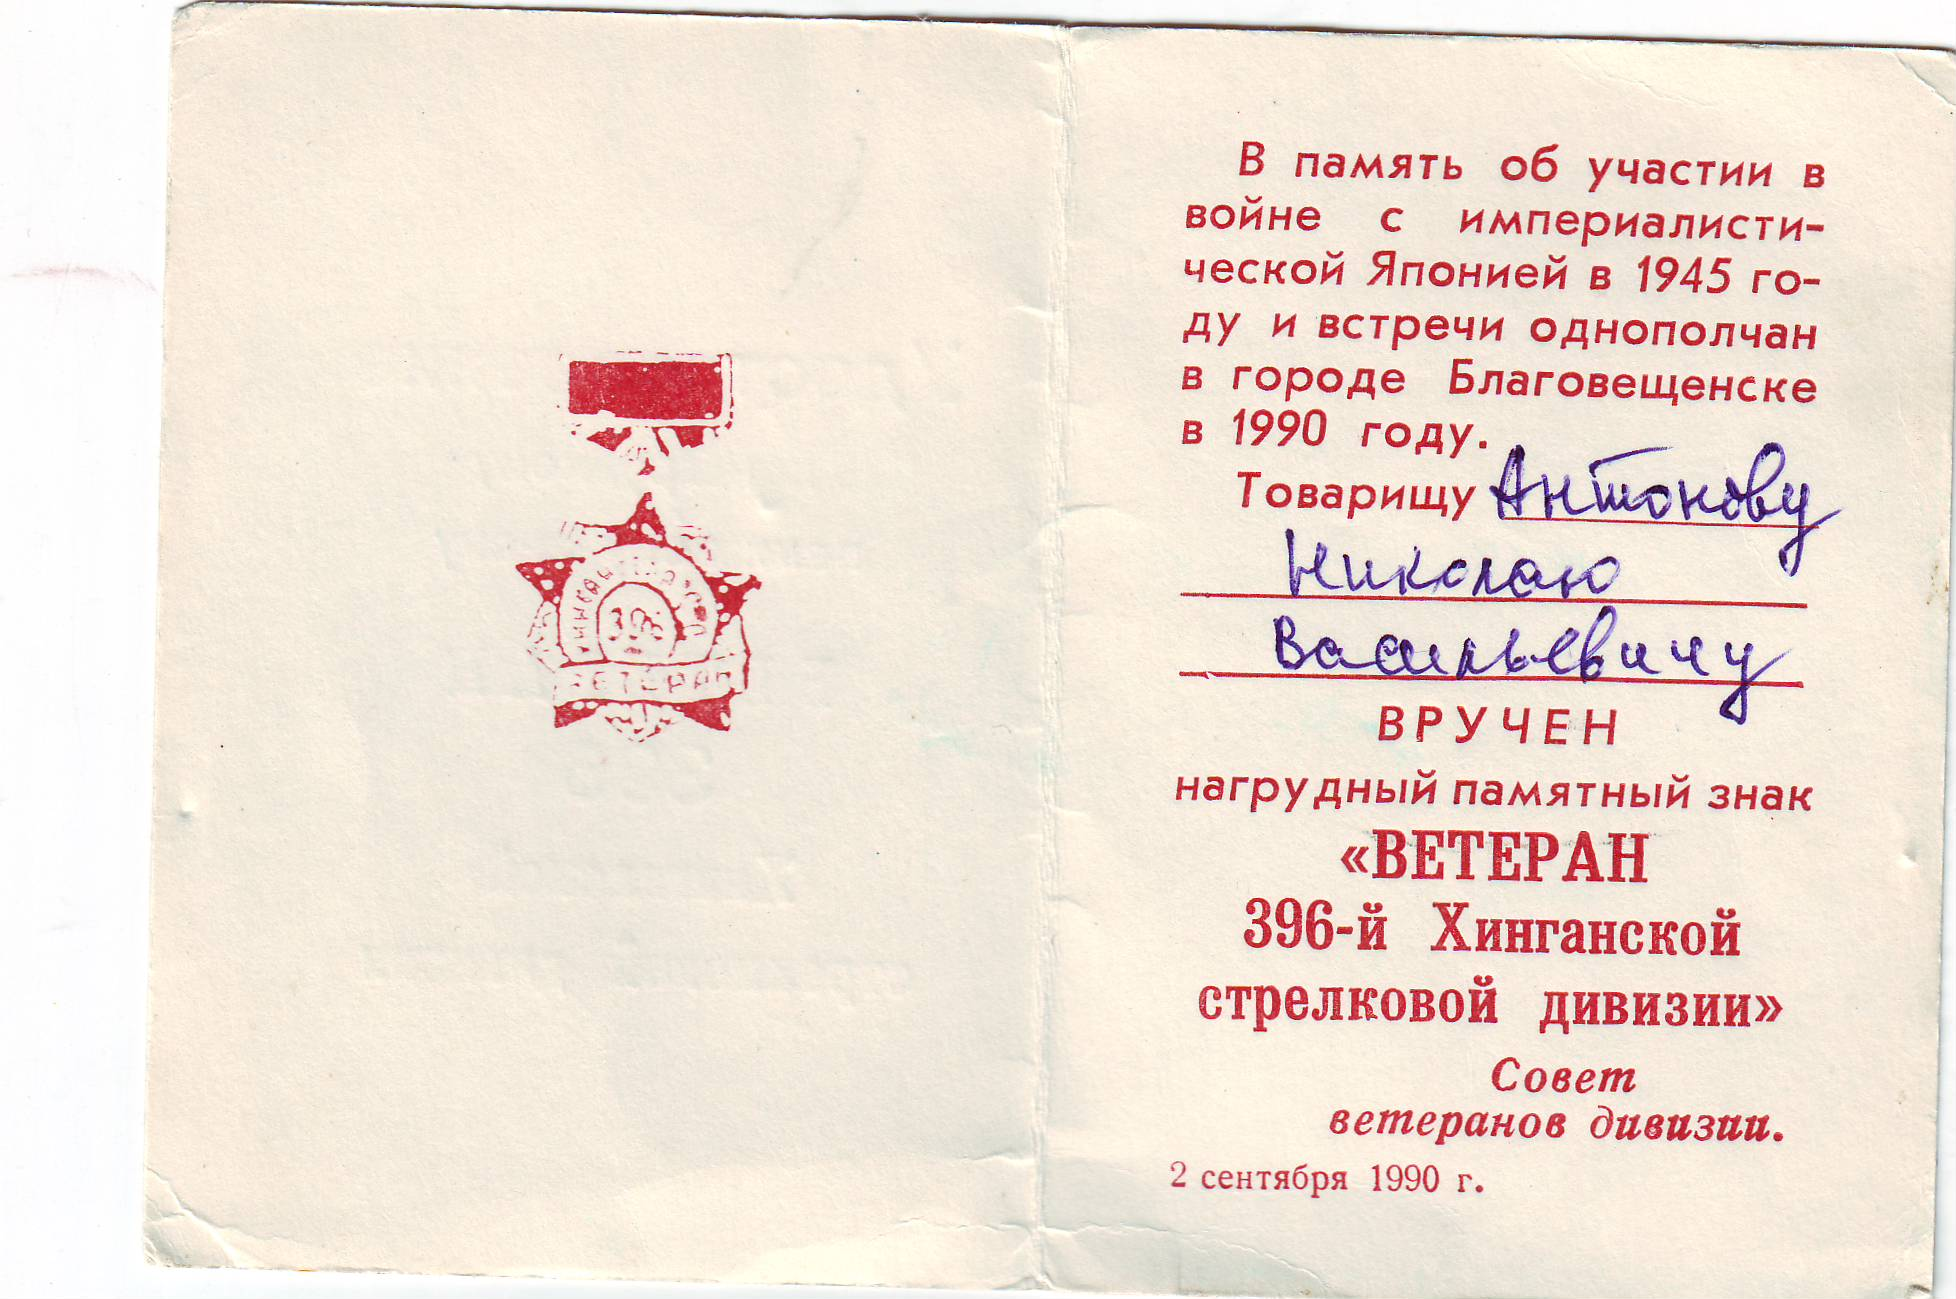 396
ВЕТЕРАН
В память об участии в
войне с империалисти-
ческой Японией в 1945 го-
ду и встречи однополчан
в городе Благовещенске
в 1990 году.
Товарищу Антонову
Николаю
Васильевичу
ВРУЧЕН
нагрудный памятный знак
«ВЕТЕРАН
396-й Хинганской
стрелковой дивизии»
Совет
ветеранов дивизии.
2 сентября 1990 г.